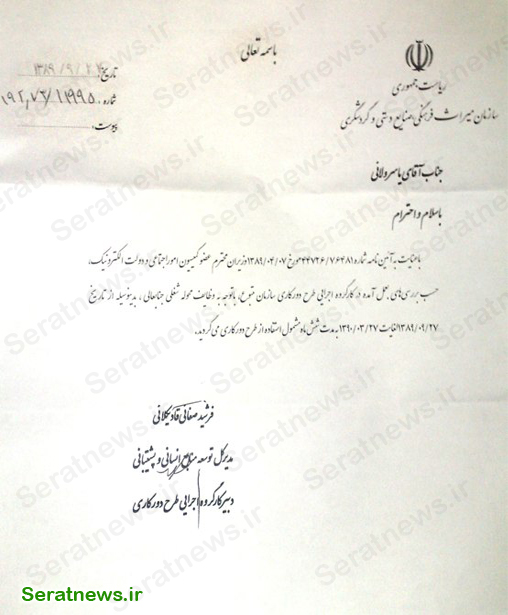 باسمه تعالی
ریاست جمهوری
سازمان میراث فرهنگی، صنایع دستی و گردشگری
تاریخ: ۱۳۸۹/۹/۲۷
شماره: ۱۹۲,۷۳/۱۱۹۹۵
پیوست:
جناب آقای یاسر ولائی
باسلام و احترام
با عنایت به آئین نامه شماره ۴۴۷۲۶/۷۶۴۸۱ مورخ ۱۳۸۹/۰۴/۰۷ وزیران محترم عضو کمیسیون امور اجتماعی و دولت الکترونیک،
حسب بررسی‌های بعمل آمده در کارگروه اجرایی طرح دورکاری سازمان متبوع، باتوجه به وظائف محوله شغلی جنابعالی، بدینوسیله از تاریخ
۱۳۸۹/۰۹/۲۷ لغایت ۱۳۹۰/۰۳/۲۷ به مدت شش ماه مشمول استفاده از طرح دورکاری می گردید.
فرشید صفائی قادیکلائی
مدیرکل توسعه منابع انسانی و پشتیبانی
دبیر کارگروه اجرایی طرح دورکاری
Seratnews.ir